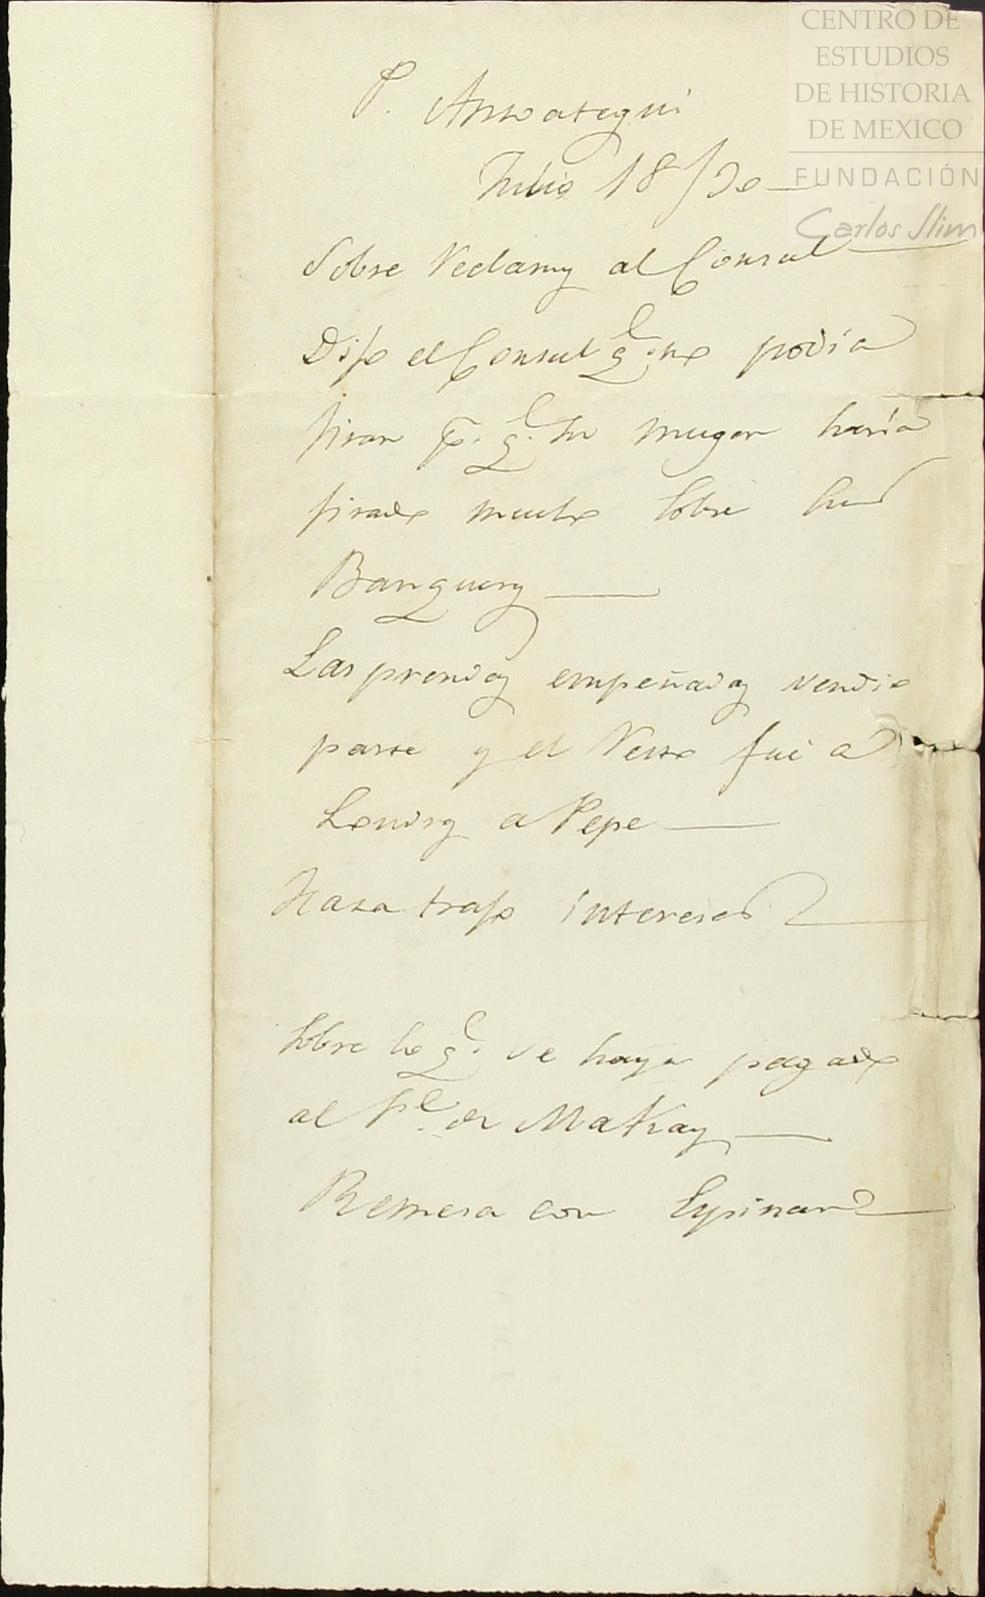 CENTRO DE
ESTUDIOS
DE HISTORIA
DE MEXICO
FUNDACIÓN
Carlos Slim
P. Ansoategui
Julio 18/
Sobre Reclamos al Consul
Dijo el Consul q.e no podia
jirar p.q.e su muger havia
jirado mucho sobre sus
Banqueros
Las prendas empeñadas vendio
parte y el resto fué a
Londres a Pepe
trajo intereses
Sobre lo q.e se haya pagado
al de MaKay
Remesa con Espinar